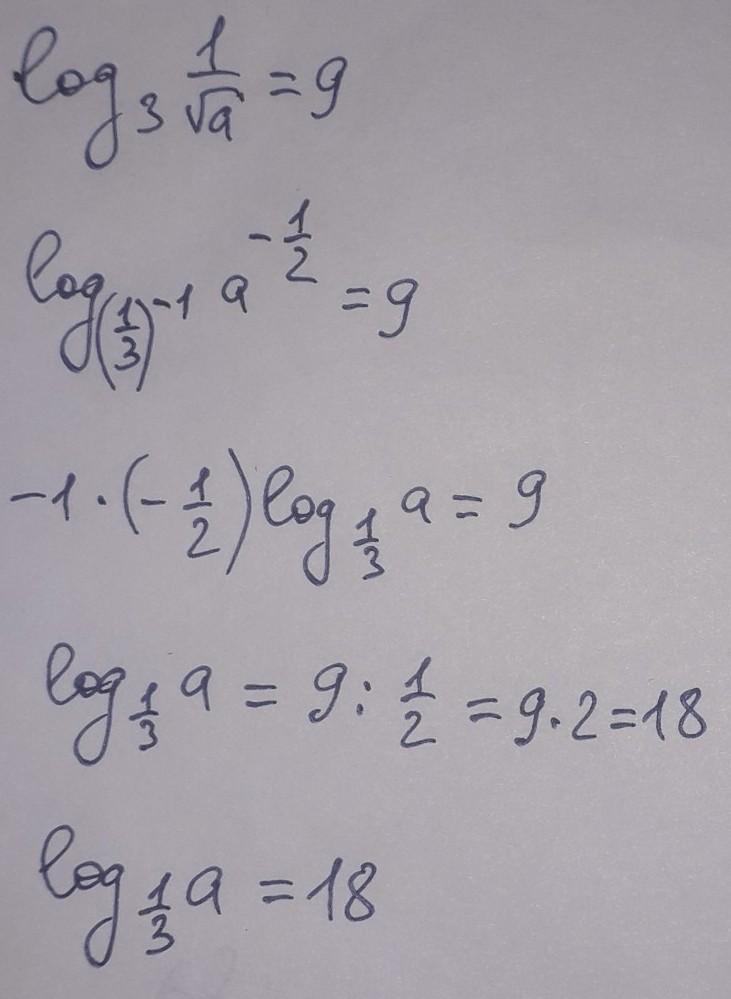 log₃ 1/√a = 9
log_(1/3)⁻¹ a^(-1/2) = 9
-1·(-1/2) log_(1/3) a = 9
log_(1/3) a = 9 : 1/2 = 9·2=18
log_(1/3) a = 18